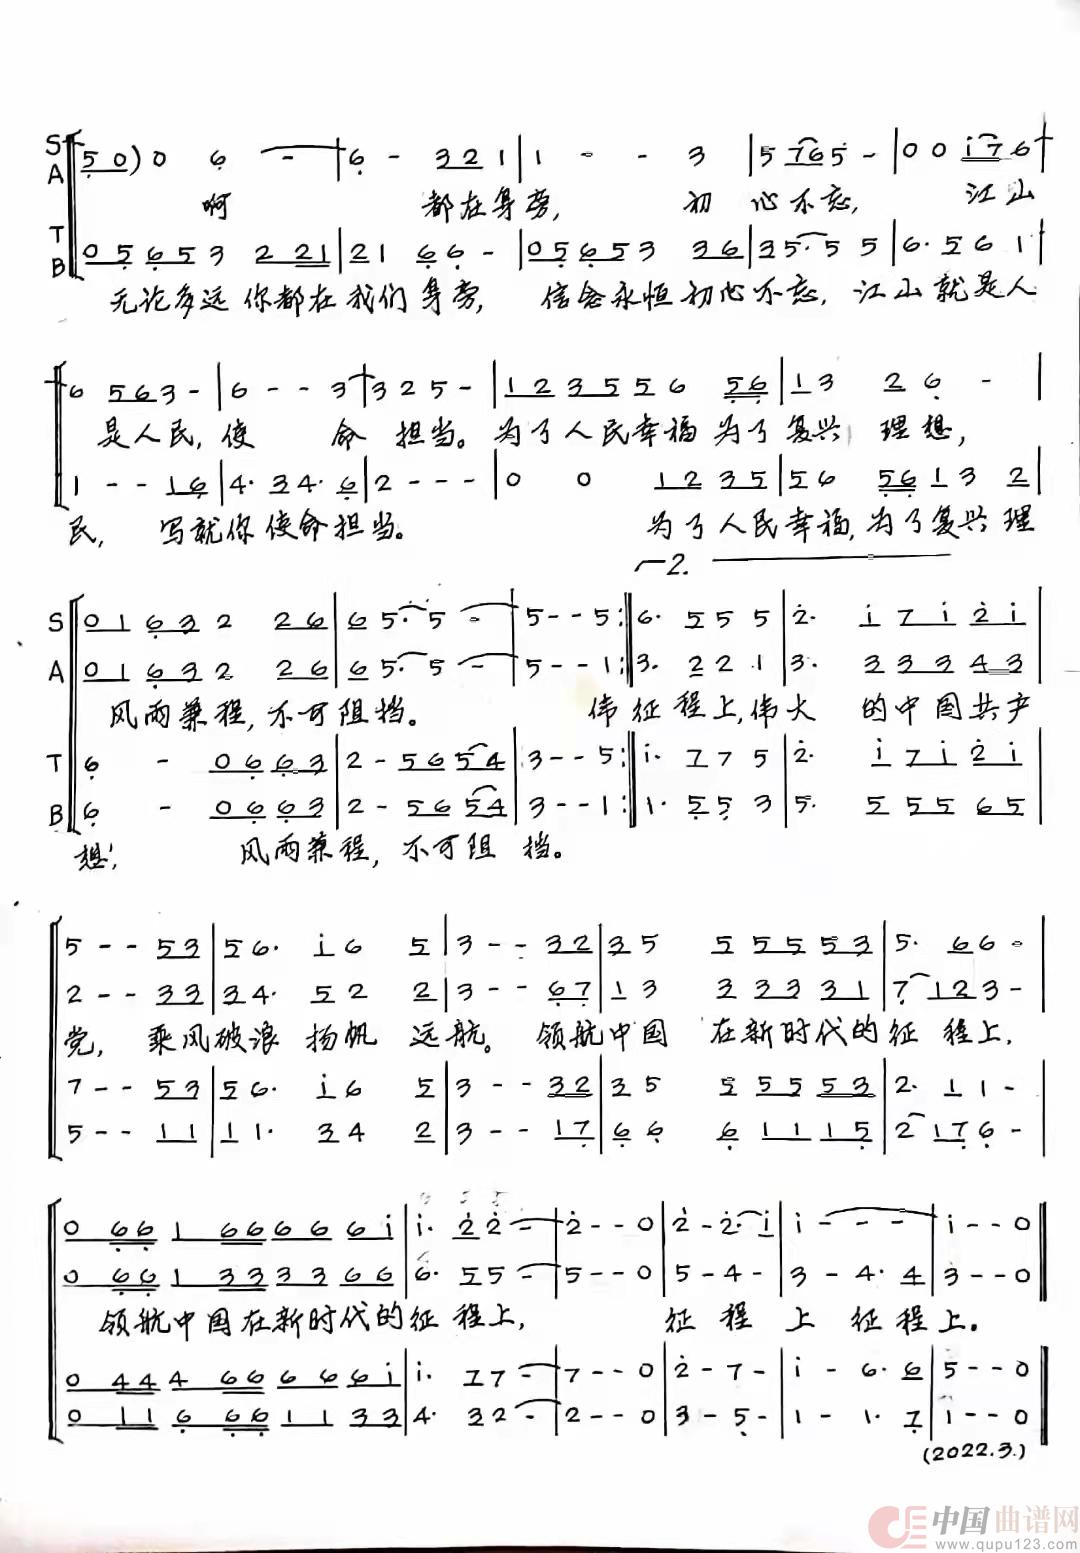 S 5 0) 0 6 - | 6 - 3 2 1 | 1 - - 3 | 5 7 6 5 - | 0 0 i 7 6
A 啊 都在身旁, 初 心不忘, 江山
T 0 5 6 5 3 2 2 1 | 2 1 6 6 - | 0 5 6 5 3 3 6 | 3 5· 5 5 | 6· 5 6 1 |
B 无论多远你都在我们身旁, 信念永恒初心不忘, 江山就是人
6 5 6 3 - | 6 - - 3 | 3 2 5 - | 1 2 3 5 5 6 5 6 | 1 3 2 6 -
是人民, 使 命 担当。为了人民幸福为了复兴 理想,
1 - - 1 6 | 4· 3 4· 6 | 2 - - - | 0 0 1 2 3 5 | 5 6 5 6 1 3 2 |
民, 写就你使命担当。 为了人民幸福,为了复兴理
2.
S 0 1 6 3 2 2 6 | 6 5· 5 - | 5 - - 5 :‖ 6· 5 5 5 | 2· i 7 i 2 i |
A 0 1 6 3 2 2 6 | 6 5· 5 - | 5 - - 1 :‖ 3· 2 2 1 | 3· 3 3 3 4 3 |
风雨兼程, 不可阻挡。 伟征程上,伟大 的中国共产
T 6 - 0 6 6 3 | 2 - 5 6 5 4 | 3 - - 5 :‖ i· 7 7 5 | 2· i 7 i 2 i |
B 6 - 0 6 6 3 | 2 - 5 6 5 4 | 3 - - 1 :‖ 1· 5 5 3 | 5· 5 5 5 6 5 |
想, 风雨兼程, 不可阻 挡。
5 - - 5 3 | 5 6· i 6 5 | 3 - - 3 2 | 3 5 5 5 5 5 3 | 5· 6 6 - |
2 - - 3 3 | 3 4· 5 2 2 | 3 - - 6 7 | 1 3 3 3 3 3 1 | 7 1 2 3 - |
党, 乘风破浪 扬帆 远航。 领航中国 在新时代的征 程上,
7 - - 5 3 | 5 6· i 6 5 | 3 - - 3 2 | 3 5 5 5 5 5 3 | 2· 1 1 - |
5 - - 1 1 | 1 1· 3 4 2 | 3 - - 1 7 | 6 6 6 1 1 1 5 | 2 1 7 6 - |
0 6 6 1 6 6 6 6 6 i | i· 2 2 - | 2 - - 0 | 2 - 2· i | i - - - | i - - 0 ‖
0 6 6 1 3 3 3 3 6 6 | 6· 5 5 - | 5 - - 0 | 5 - 4 - | 3 - 4· 4 | 3 - - 0 ‖
领航中国在新时代的征 程上, 征 程 上 征程上.
0 4 4 4 6 6 6 6 6 i | i· 7 7 - | 7 - - 0 | 2 - 7 - | i - 6· 6 | 5 - - 0
0 1 1 6 6 6 1 1 3 3 | 4· 3 2 - | 2 - - 0 | 3 - 5 - | 1 - 1· 7 | 1 - - 0
(2022.3.)
中国曲谱网
www.qupu123.com